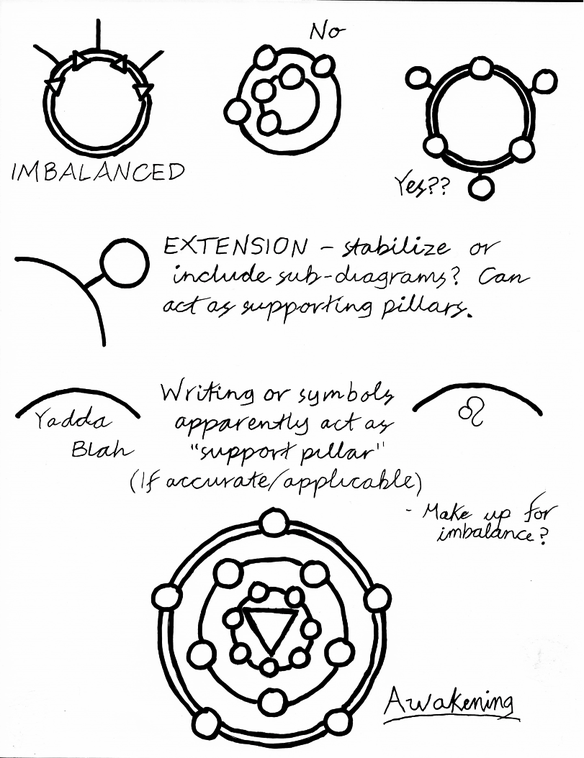 No
IMBALANCED
Yes??
EXTENSION - stabilize or
include sub-diagrams? Can
act as supporting pillars.
Yadda
Blah
Writing or symbols
apparently act as
"support pillar"
(If accurate/applicable)
♌
- Make up for
imbalance?
Awakening